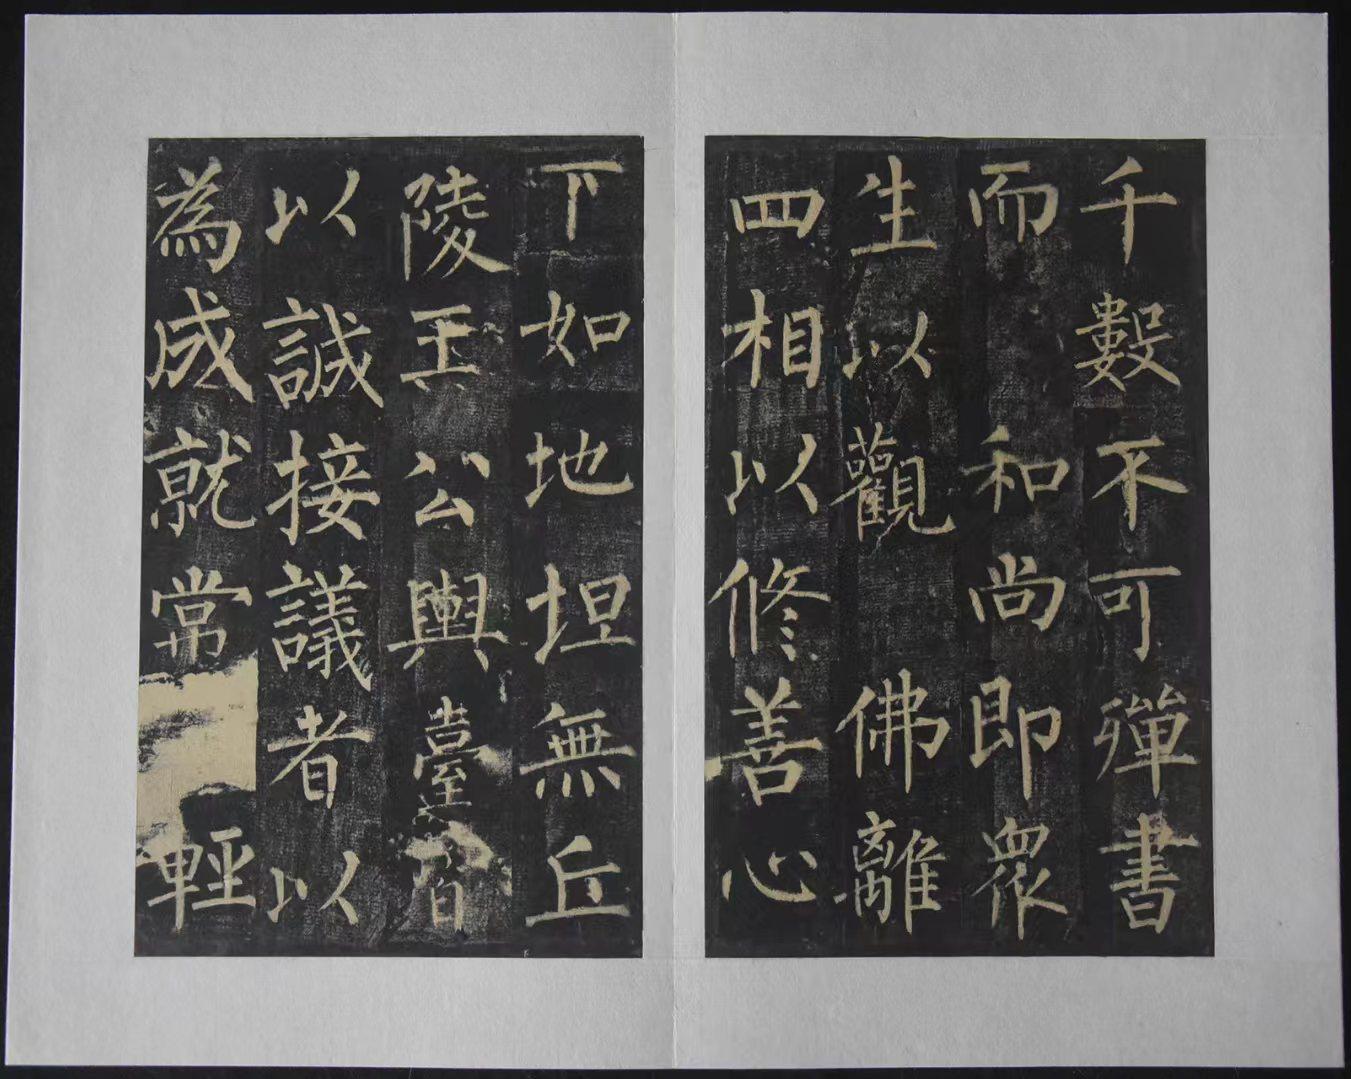 千數不可殫書
而和尚即眾
生以觀佛離
四相以修善心
下如地坦無丘
陵王公輿臺皆
以誠接議者以
為成就常輕